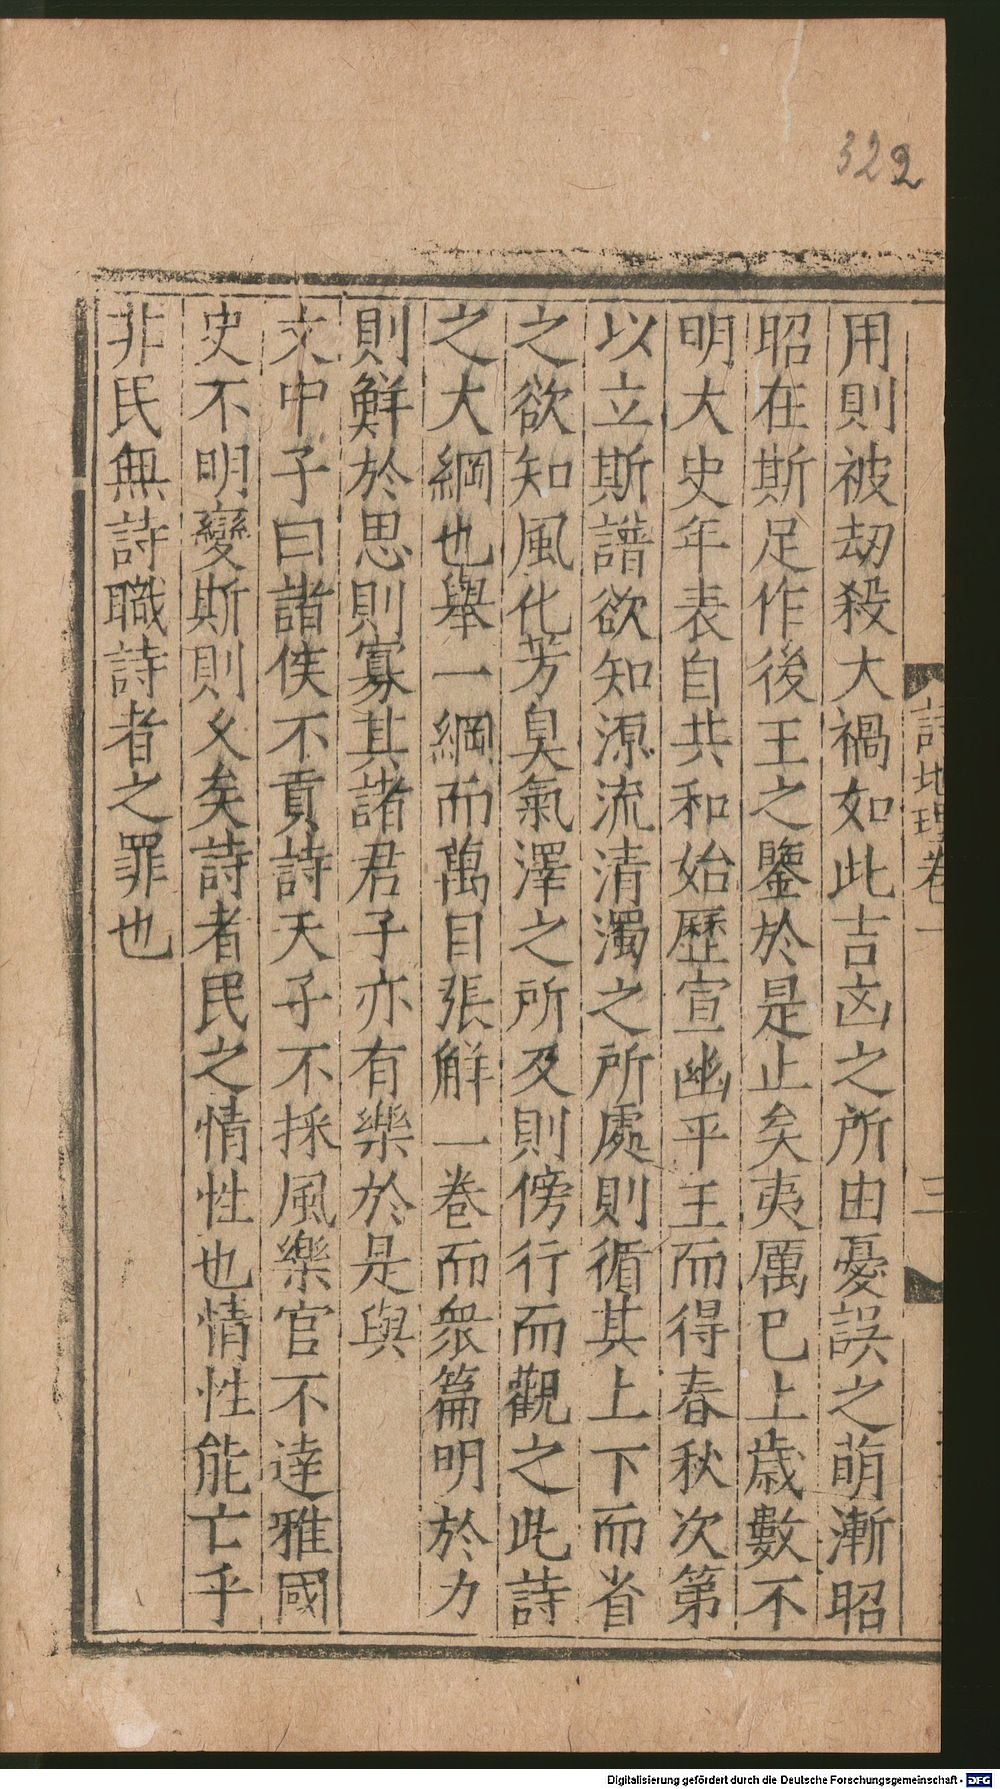 322
詩地理卷一
三
用則被刧殺大禍如此吉凶之所由憂誤之萌漸昭
昭在斯足作後王之鑒於是止矣夷厲已上歲數不
明大史年表自共和始歷宣幽平王而得春秋次第
以立斯譜欲知源流清濁之所處則循其上下而省
之欲知風化芳臭氣澤之所及則傍行而觀之此詩
之大綱也舉一綱而萬目張觧一卷而衆篇明於力
則鮮於思則寡其諸君子亦有樂於是與
文中子曰諸侯不貢詩天子不採風樂官不逹雅國
史不明變斯則乆矣詩者民之情性也情性能亡乎
非民無詩職詩者之罪也
Digitalisierung gefördert durch die Deutsche Forschungsgemeinschaft - DFG